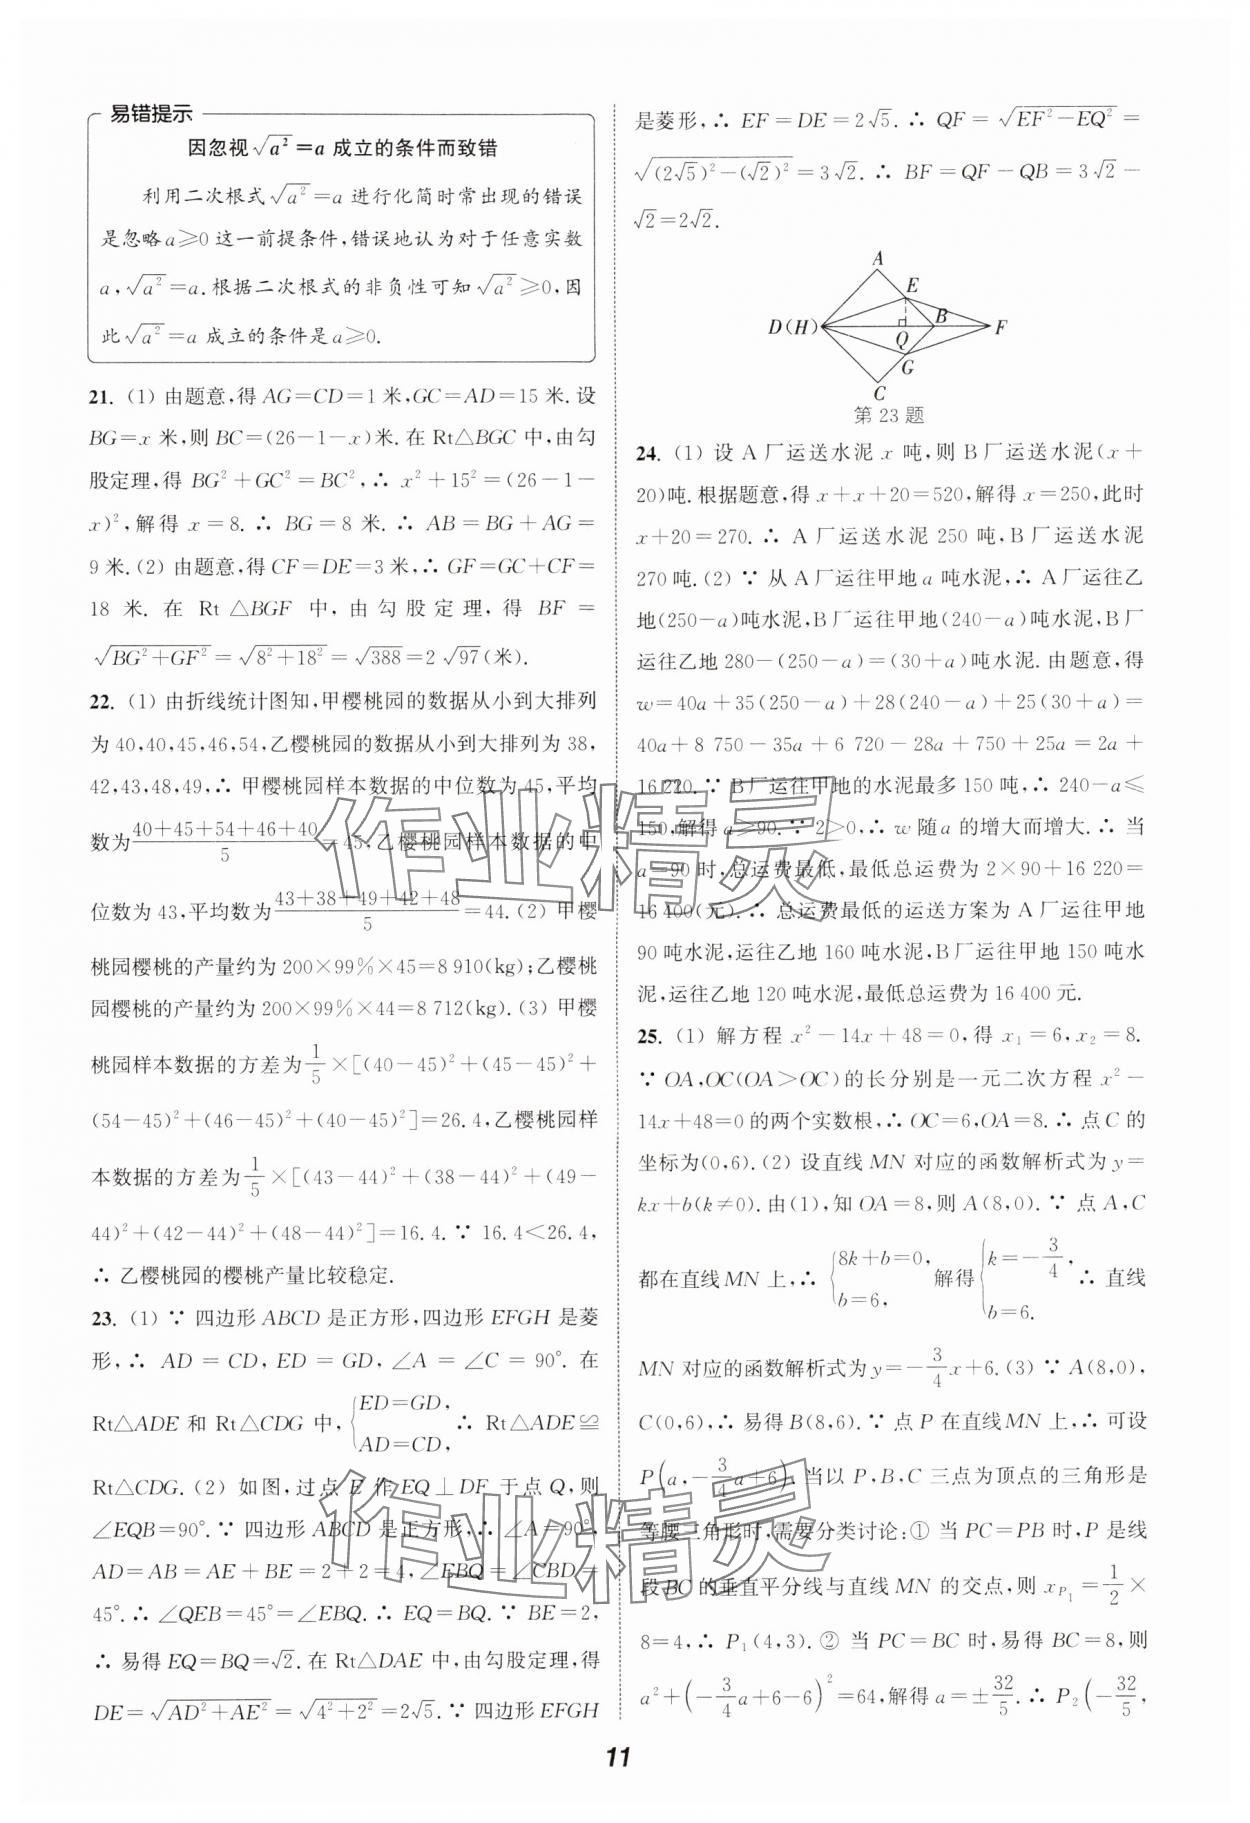 易错提示
因忽视√a²=a 成立的条件而致错
利用二次根式√a²=a 进行化简时常出现的错误
是忽略a≥0这一前提条件,错误地认为对于任意实数
a,√a²=a.根据二次根式的非负性可知√a²≥0,因
此√a²=a 成立的条件是a≥0.
21. (1) 由题意,得AG=CD=1米,GC=AD=15米.设
BG=x米,则BC=(26-1-x)米.在Rt△BGC中,由勾
股定理,得 BG²+GC²=BC²,∴ x²+15²=(26-1-
x)²,解得 x=8.∴ BG=8 米.∴ AB=BG+AG=
9米.(2) 由题意,得CF=DE=3米,∴ GF=GC+CF=
18 米. 在 Rt△BGF 中,由勾股定理,得 BF=
√(BG²+GF²)=√(8²+18²)=√388=2√97(米).
22. (1) 由折线统计图知,甲樱桃园的数据从小到大排列
为40,40,45,46,54,乙樱桃园的数据从小到大排列为38,
42,43,48,49,∴ 甲樱桃园样本数据的中位数为45,平均
数为(40+45+54+46+40)/5=45,乙樱桃园样本数据的中
位数为43,平均数为(43+38+49+42+48)/5=44.(2) 甲樱
桃园樱桃的产量约为200×99%×45=8 910(kg);乙樱桃
园樱桃的产量约为200×99%×44=8 712(kg).(3) 甲樱
桃园样本数据的方差为1/5×[(40-45)²+(45-45)²+
(54-45)²+(46-45)²+(40-45)²]=26.4,乙樱桃园样
本数据的方差为1/5×[(43-44)²+(38-44)²+(49-
44)²+(42-44)²+(48-44)²]=16.4.∵ 16.4<26.4,
∴ 乙樱桃园的樱桃产量比较稳定.
23. (1) ∵ 四边形ABCD是正方形,四边形EFGH是菱
形,∴ AD=CD,ED=GD,∠A=∠C=90°.在
Rt△ADE 和 Rt△CDG 中,{ED=GD, AD=CD, ∴ Rt△ADE≌
Rt△CDG.(2) 如图,过点E作EQ⊥DF于点Q,则
∠EQB=90°.∵ 四边形ABCD是正方形,∴ ∠A=90°,
AD=AB=AE+BE=2+2=4,∠EBQ=∠CBD=
45°.∴ ∠QEB=45°=∠EBQ.∴ EQ=BQ.∵ BE=2,
∴ 易得EQ=BQ=√2.在Rt△DAE中,由勾股定理,得
DE=√(AD²+AE²)=√(4²+2²)=2√5.∵ 四边形EFGH
是菱形,∴ EF=DE=2√5.∴ QF=√(EF²-EQ²)=
√((2√5)²-(√2)²)=3√2.∴ BF=QF-QB=3√2-
√2=2√2.
A
E
D(H)
B
F
Q
G
C
第23题
24. (1) 设 A厂运送水泥 x 吨,则 B厂运送水泥(x+
20)吨.根据题意,得x+x+20=520,解得x=250,此时
x+20=270.∴ A厂运送水泥250吨,B厂运送水泥
270吨.(2) ∵ 从A厂运往甲地a吨水泥,∴ A厂运往乙
地(250-a)吨水泥,B厂运往甲地(240-a)吨水泥,B厂
运往乙地280-(250-a)=(30+a)吨水泥.由题意,得
w=40a+35(250-a)+28(240-a)+25(30+a)=
40a+8 750-35a+6 720-28a+750+25a=2a+
16 220.∵ B厂运往甲地的水泥最多150吨,∴ 240-a≤
150,解得a≥90.∵ 2>0,∴ w随a的增大而增大.∴ 当
a=90时,总运费最低,最低总运费为2×90+16 220=
16 400(元).∴ 总运费最低的运送方案为A厂运往甲地
90吨水泥,运往乙地160吨水泥,B厂运往甲地150吨水
泥,运往乙地120吨水泥,最低总运费为16 400元.
25. (1) 解方程 x²-14x+48=0,得 x₁=6,x₂=8.
∵ OA,OC(OA>OC)的长分别是一元二次方程 x²-
14x+48=0的两个实数根,∴ OC=6,OA=8.∴ 点C的
坐标为(0,6).(2) 设直线MN对应的函数解析式为y=
kx+b(k≠0).由(1),知OA=8,则A(8,0).∵ 点A,C
都在直线MN上,∴ {8k+b=0, b=6, 解得{k=-3/4, b=6. ∴ 直线
MN对应的函数解析式为y=-3/4x+6.(3) ∵ A(8,0),
C(0,6),∴ 易得B(8,6).∵ 点P在直线MN上,∴ 可设
P(a,-3/4a+6).当以P,B,C三点为顶点的三角形是
等腰三角形时,需要分类讨论:① 当PC=PB时,P是线
段BC的垂直平分线与直线MN的交点,则x_P₁=1/2×
8=4,∴ P₁(4,3).② 当 PC=BC 时,易得 BC=8,则
a²+(-3/4a+6-6)²=64,解得a=±32/5.∴ P₂(-32/5,
11
作业精灵
作业精灵